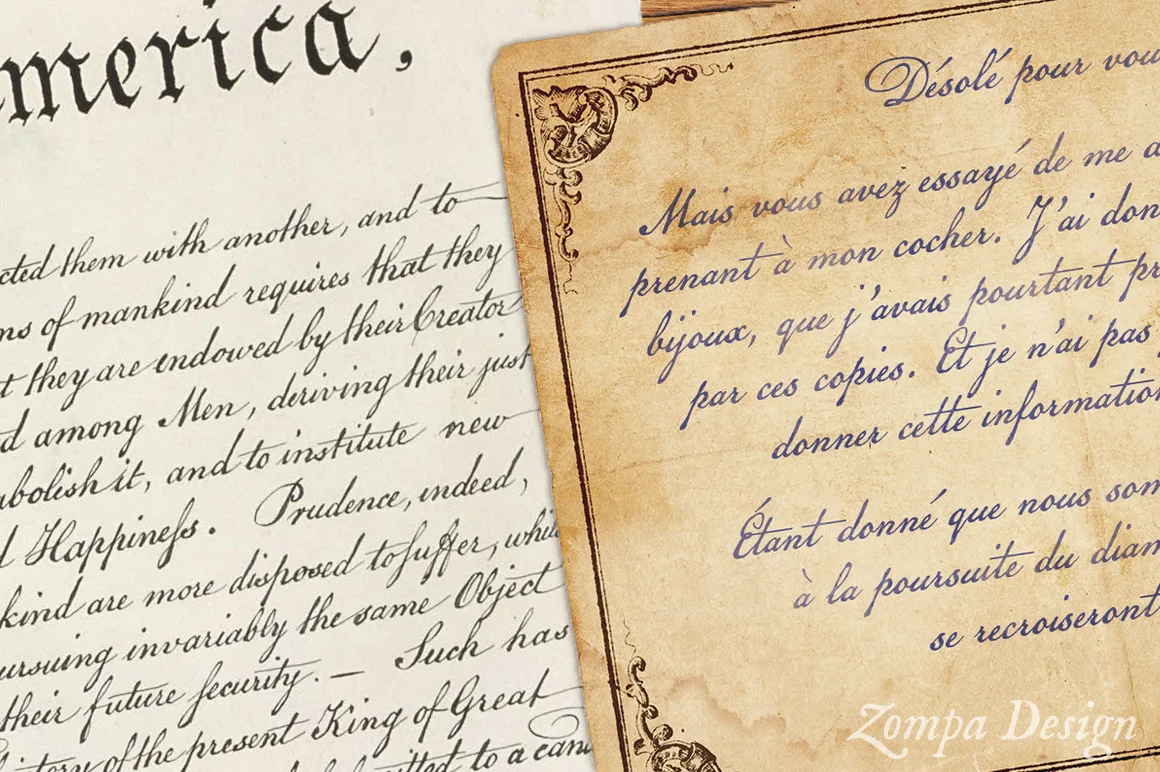 merica,
cted them with another, and to
ns of mankind requires that they
t they are endowed by their Creator
d among Men, deriving their just
abolish it, and to institute new
d Happineſs. Prudence, indeed,
kind are more disposed to suffer, while
ursuing invariably the same Object
their future ſecurity. — Such has
history of the present King of Great
to a cand
Désolé pour vou
Mais vous avez essayé de me a
prenant à mon cocher. J'ai don
bijoux, que j'avais pourtant pr
par ces copies. Et je n'ai pas
donner cette information
Étant donné que nous som
à la poursuite du diam
se recroiseront
Zompa Design